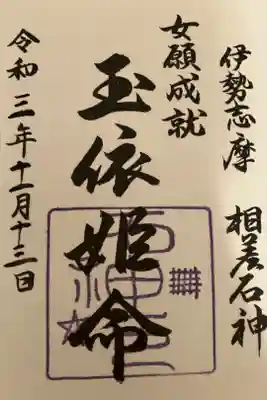 伊勢志摩 相差石神
女願成就
玉依姫命
令和三年十一月十三日